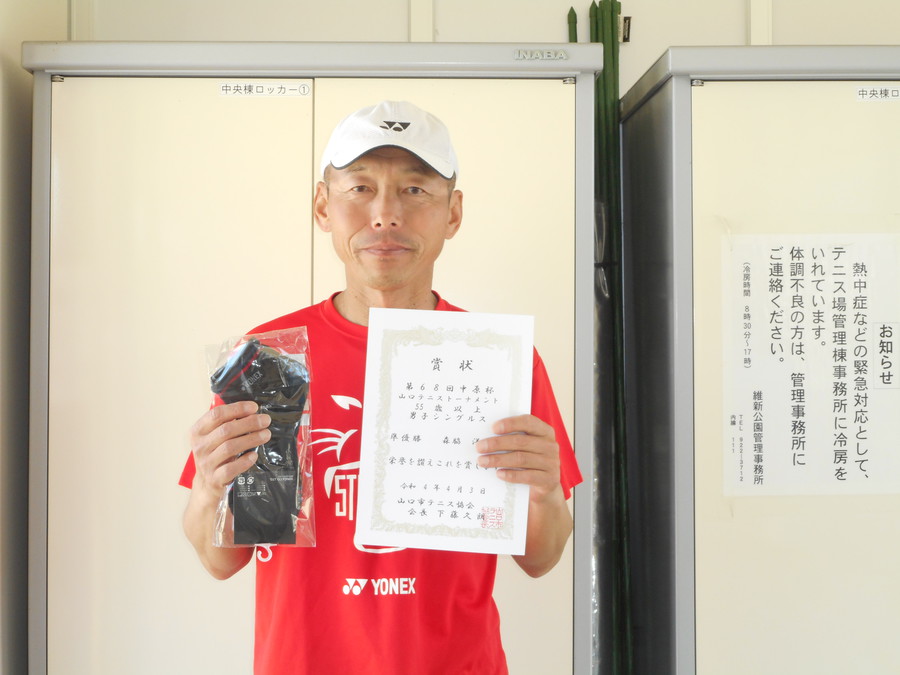 INABA
中央棟ロッカー①
中央棟ロ
賞状
第68回中原杯
山口テニストーナメント
55歳以上
男子シングルス
準優勝 森脇
栄誉を讃えこれを賞し
令和4年4月3日
山口市テニス協会
会長 下藤文
ST
YONEX
お知らせ
熱中症などの緊急対応として、
テニス場管理棟事務所に冷房を
いれています。
体調不良の方は、管理事務所に
ご連絡ください。
(冷房時間 8時30分~17時)
維新公園管理事務所
TEL 922-3712
内線 111